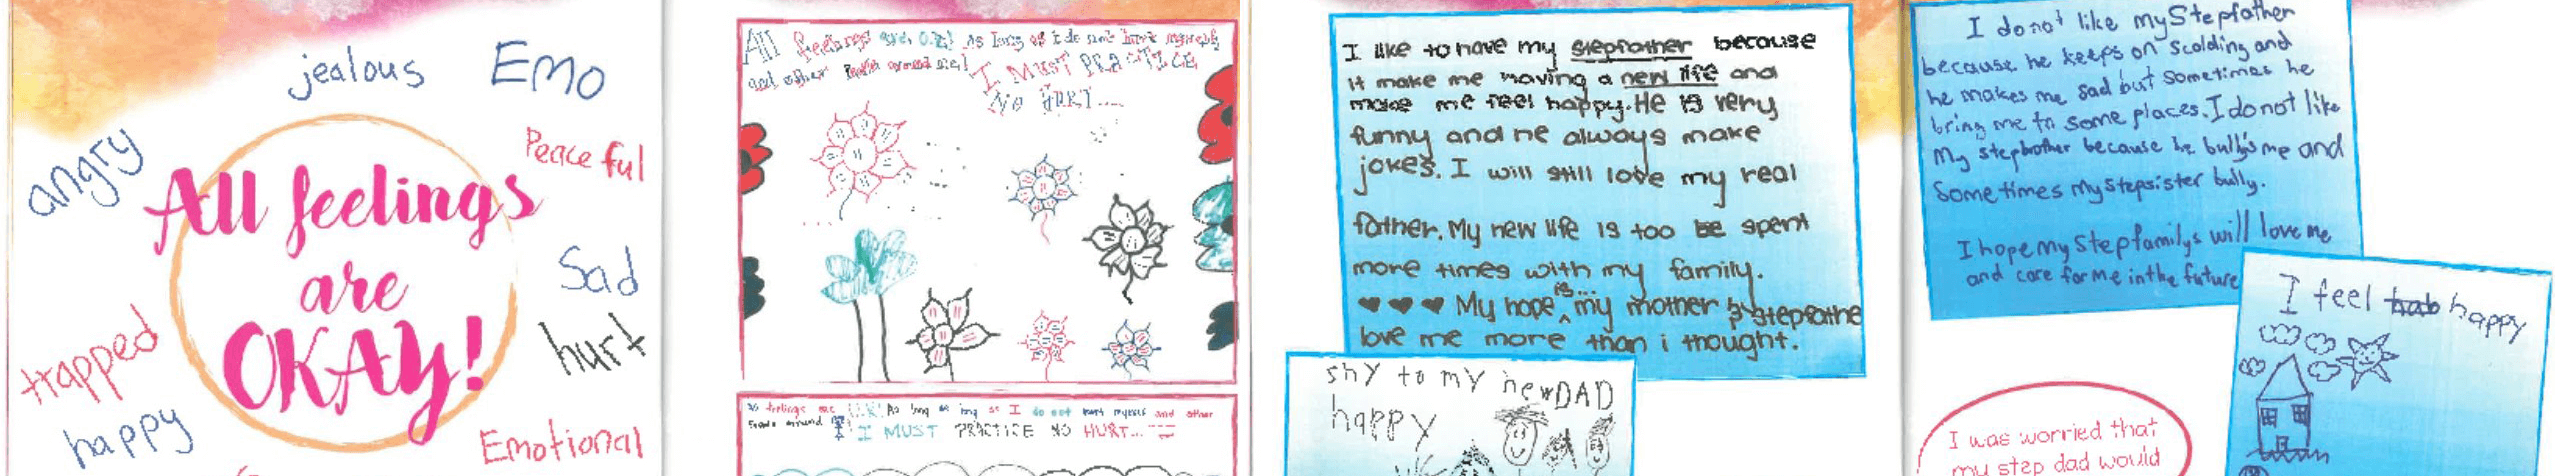 jealous
EMO
angry
Peaceful
All feelings
are
OKAY!
Sad
trapped
hurt
happy
Emotional
All feelings are O.K! As long as I do not hurt myself
and other People around me!
I MUST PRACTICE
NO HURT....
All feelings are O.K! As long as I do not hurt myself and other
People around
I MUST PRACTICE NO HURT...
I like to have my stepfather because
it make me having a new life and
make me feel happy. He is very
funny and he always make
jokes. I will still love my real
father. My new life is too be spent
more times with my family.
♥♥♥ My hope is... my mother & stepfathe
love me more than i thought.
shy to my newDAD
happy
I do not like my Stepfather
because he keeps on scolding and
he makes me sad but sometimes he
bring me to some places. I do not like
my stepbrother because he bullys me and
Sometimes my stepsister bully.
I hope my Stepfamilys will love me
and care for me in the future
I feel hab happy
I was worried that
my step dad would